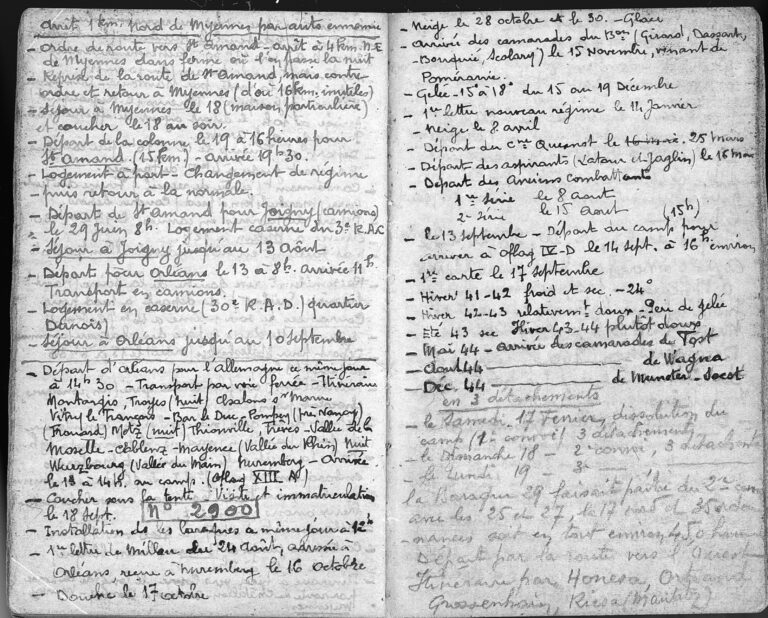 Arrêt 1 km. nord de Myennes par auto ennemie
- Ordre de route vers St Amand - arrêt à 4 km. N.E
de Myennes dans ferme où l'on passe la nuit
- Reprise de la route de St Amand, mais contre
ordre et retour à Myennes (d'où 16 km. inutiles)
- Séjour à Myennes le 18 (maison particulière)
et coucher le 18 au soir.
- Départ de la colonne le 19 à 16 heures pour
St Amand. (15 km) - Arrivée 19h30.
- Logement à part - Changement de régime
- puis retour à la normale.
- Départ de St Amand pour Joigny (camions)
le 29 Juin 8h. Logement caserne du 3e R.A.C
- Séjour à Joigny jusqu'au 13 Août.
- Départ pour Orléans le 13 à 8h. arrivée 11h
Transport en camions.
- Logement en caserne (30e R.A.D.) quartier
Dunois)
- Séjour à Orléans jusqu'au 10 Septembre
- Départ d'Orléans pour l'Allemagne ce même jour
à 14h30 - Transport par voie ferrée - Itinéraire
Montargis - Troyes (nuit) Chalons s/ Marne
Vitry le François - Bar le Duc - Pompey (près Nancy)
(Frouard) Metz (nuit) Thionville Trèves - Vallée de la
Moselle - Coblenz - Mayence (Vallée du Rhin) Nuit
Wurzbourg (Vallée du Main) Nuremberg - Arrivée
le 13 à 14h. au camp. (Oflag XIII A)
- Coucher sous la tente. Visite et immatriculation
le 18 Sept. No 2900
- Installation ds les baraques ce même jour à 12h
- 1re lettre de Millau du 24 Août, arrivée à
Orléans reçue à Nuremberg le 16 octobre
- Douche le 17 octobre
- Neige le 28 octobre et le 30. - Glace
- Arrivée des camarades du 13e (Girard, Dassart,
- Bouquié, Scolary) le 15 Novembre, venant de
Poméranie.
- Gelée - 15° à 18° du 15 au 19 Décembre
- 1re lettre nouveau régime le 14 Janvier
- Neige le 8 avril
- Départ du Cne Quesnot le 16 Mai. 25 Mars
- Départ des aspirants (Latour et Jaglin) le 16 Mai
- Départ des Anciens Combattants
1re Série le 8 Août
2e Série le 15 Août (15h)
- le 13 Septembre - Départ du camp pour
arriver à Oflag IV-D le 14 Sept. à 16h environ
- 1re carte le 17 Septembre
- Hiver 41-42 froid et sec. - 24°
- Hiver 42-43 relativemt doux - Peu de gelée
- Eté 43 sec Hiver 43-44 plutôt doux
- Mai 44 - Arrivée des camarades de Tost
- Août 44 de Wagna
- Dec. 44 de Munster - Soest
en 3 détachements
- le Samedi 17 Février, dissolution du
camp (1er convoi) 3 détachements
- le Dimanche 18 - 2e convoi, 3 détachem
- le Lundi 19 3e
la Baraque 29 faisait partie du 2e con
avec les 25 et 27, le 17 nord et 35 ordon
nances soit en tout environ 450 hommes
Départ par la route vers l'Ouest
Itinéraire par Honesa, Ortrand
Grossenhain, Riesa